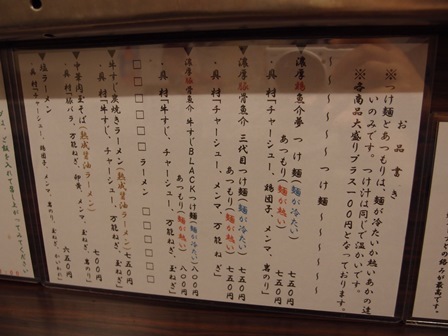 お品書き
※つけ麺とあつもりは、麺が冷たいか熱いかの違
いのみです。つけ汁は同じで温かいです。
※各商品大盛りプラス一〇〇円となっております。
〜〜〜〜〜つけ麺〜〜〜〜〜
◆濃厚鶏魚介 夢 つけ麺(麺が冷たい) 七五〇円
あつもり(麺が熱い) 七五〇円
・具材「チャーシュー、鶏団子、メンマ、岩のり」
◆濃厚豚骨魚介 三代目つけ麺(麺が冷たい) 七五〇円
あつもり(麺が熱い) 七五〇円
・具材「チャーシュー、メンマ、万能ねぎ、玉ねぎ」
◆濃厚豚骨魚介 牛すじBLACKつけ麺(麺が冷たい) 八〇〇円
あつもり(麺が熱い) 八〇〇円
・具材「牛すじ、チャーシュー、万能ねぎ、玉ねぎ」
□□□□□ ラーメン □□□□□
◆牛すじ炭焼きラーメン(熟成醤油ラーメン) 七五〇円
・具材「牛すじ、チャーシュー、メンマ、万能ねぎ、玉ねぎ」
◆中華肉玉そば(熟成醤油ラーメン) 七五〇円
・具材「豚バラ、万能ねぎ、卵黄、メンマ、岩のり」
◆塩ラーメン 六五〇円
・具材「チャーシュー、鶏団子、メンマ、玉ねぎ、かいわれ」